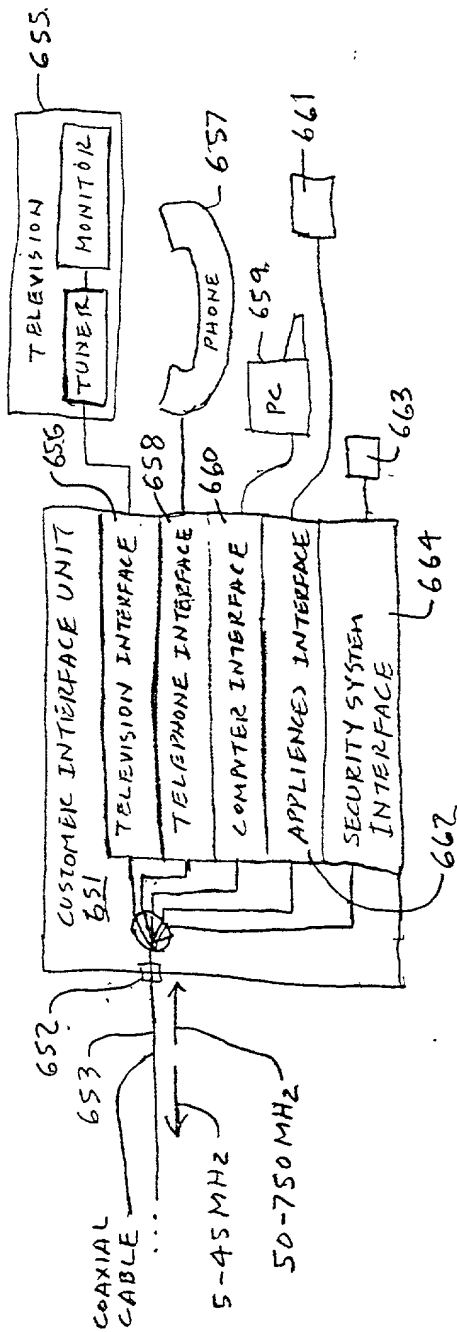 COAXIAL
CABLE
...
653
652
5-45 MHz
50-750 MHz
CUSTOMER INTERFACE UNIT
651
TELEVISION INTERFACE
656
TELEPHONE INTERFACE
658
COMPUTER INTERFACE
660
APPLIENCES INTERFACE
662
SECURITY SYSTEM
INTERFACE
664
TELEVISION
TUNER
MONITOR
655
PHONE
657
PC
659
661
663